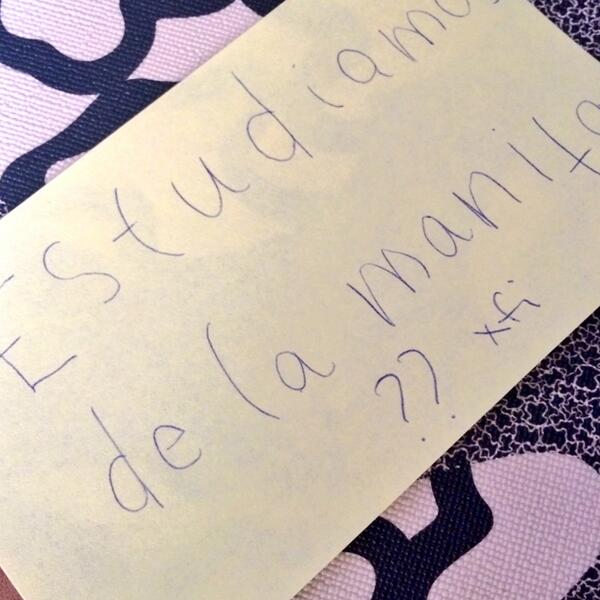 Estudiamos
de la manita
?? xfi